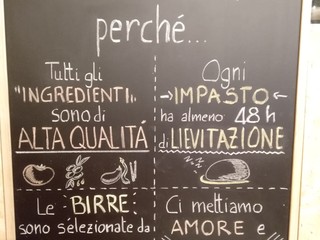 perché...
Tutti gli
"INGREDIENTI"
sono di
ALTA QUALITÁ
Ogni
→IMPASTO←
ha almeno 48 h
di LIEVITAZIONE
Le BIRRE
sono sélezionate da
Ci mettiamo
AMORE e